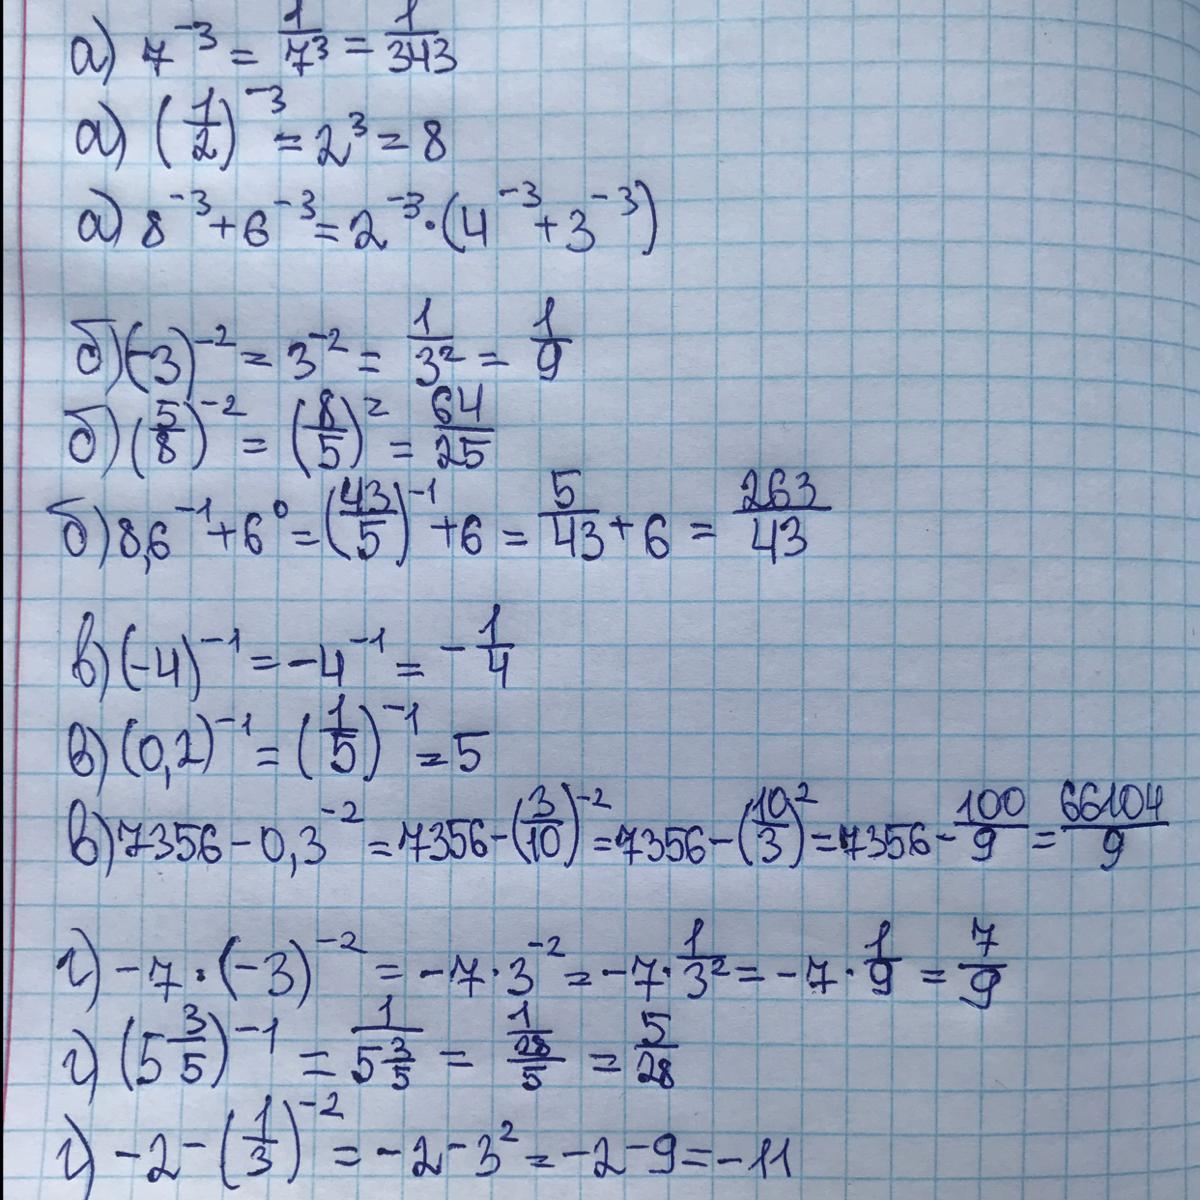 а) 7⁻³ = 1/7³ = 1/343
а) (1/2)⁻³ = 2³ = 8
а) 8⁻³ + 6⁻³ = 2⁻³ · (4⁻³ + 3⁻³)
б) (-3)⁻² = 3⁻² = 1/3² = 1/9
б) (5/8)⁻² = (8/5)² = 64/25
б) 8,6⁻¹ + 6⁰ = (43/5)⁻¹ + 6 = 5/43 + 6 = 263/43
в) (-4)⁻¹ = -4⁻¹ = -1/4
в) (0,2)⁻¹ = (1/5)⁻¹ = 5
в) 7356 - 0,3⁻² = 7356 - (3/10)⁻² = 7356 - (10²/3) = 7356 - 100/9 = 66104/9
г) -7 · (-3)⁻² = -7 · 3⁻² = -7 · 1/3² = -7 · 1/9 = 7/9
г) (5 3/5)⁻¹ = 1/(5 3/5) = 1/(28/5) = 5/28
г) -2 - (1/3)⁻² = -2 - 3² = -2 - 9 = -11